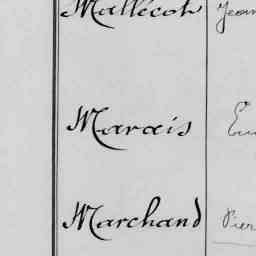 Mallécot Jean
Marais
Marchand Pier